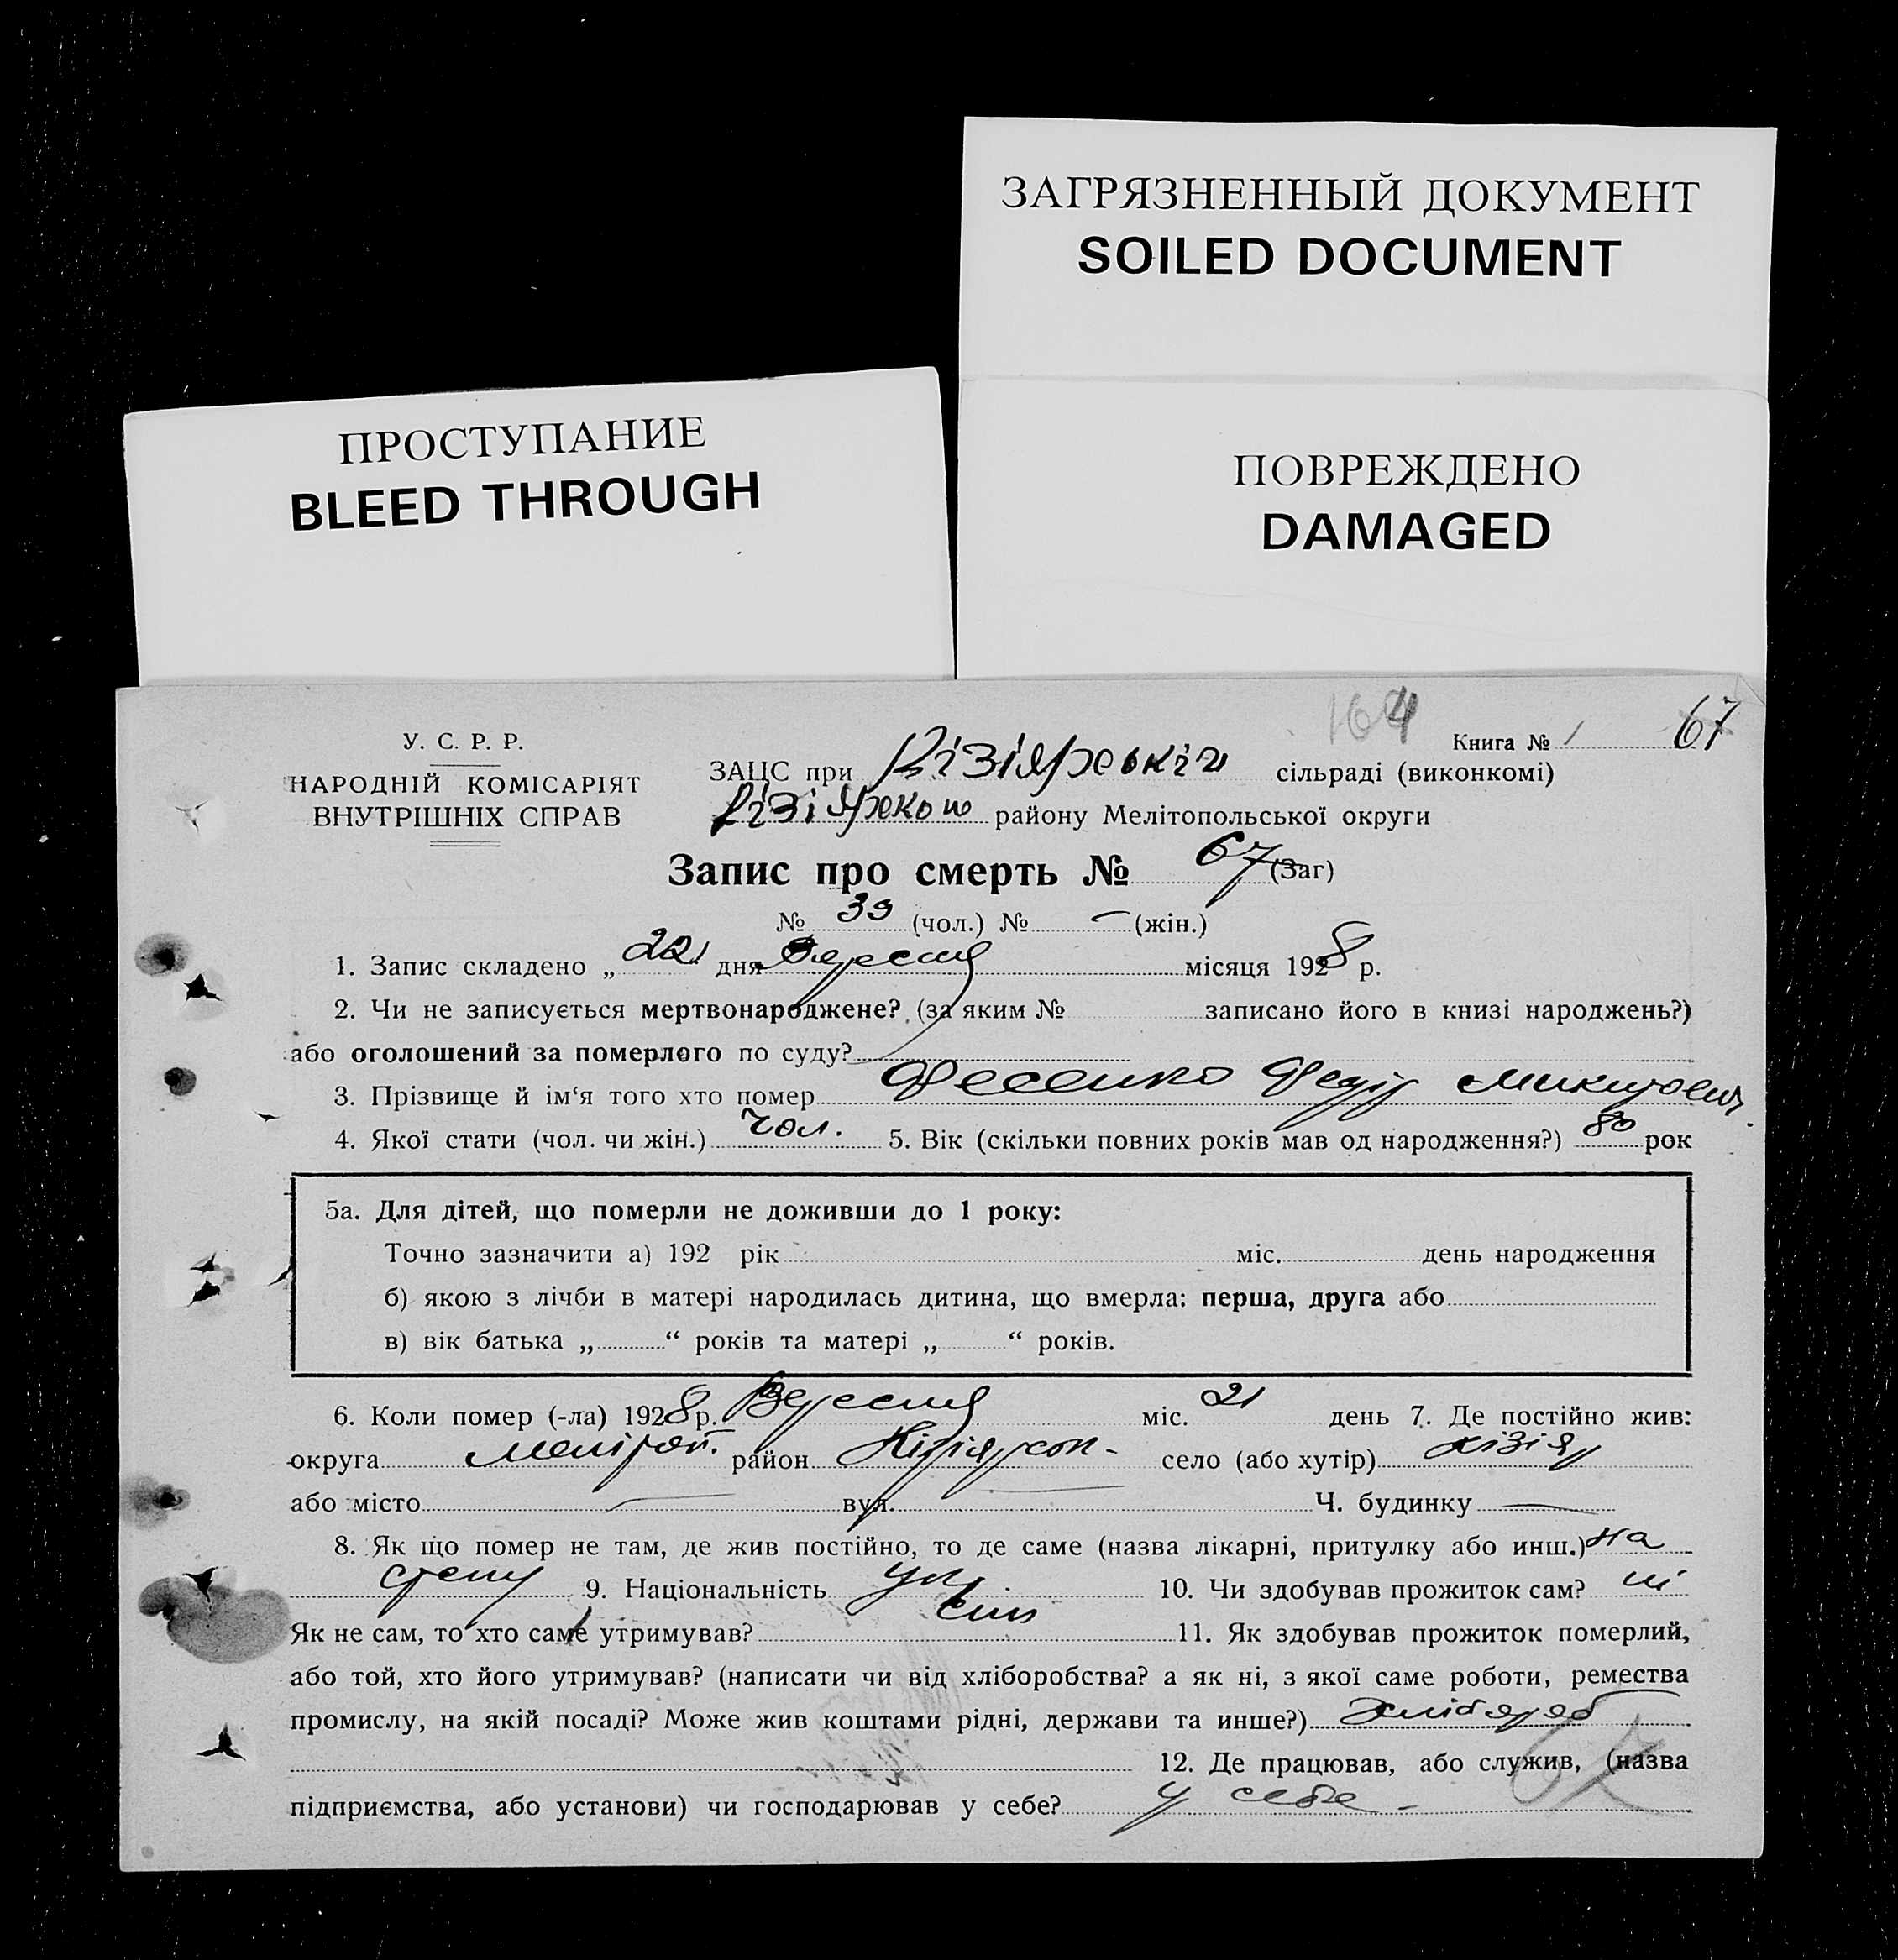 ЗАГРЯЗНЕННЫЙ ДОКУМЕНТ
SOILED DOCUMENT
ПРОСТУПАНИЕ
BLEED THROUGH
ПОВРЕЖДЕНО
DAMAGED
164
Книга № 1 67
У. С. Р. Р.
НАРОДНІЙ КОМІСАРІЯТ
ВНУТРІШНІХ СПРАВ
ЗАЦС при Кізіярській сільраді (виконкомі)
району Мелітопольської округи
Запис про смерть № 67 (Заг)
№ 39 (чол.) № — (жін.)
1. Запис складено „ 22 дня Вересня місяця 1928 р.
2. Чи не записується мертвонароджене? (за яким № записано його в книзі народжень?)
або оголошений за померлого по суду?
3. Прізвище й ім‘я того хто помер Фесенко Федір Микитович
4. Якої стати (чол. чи жін.) Чол. 5. Вік (скільки повних років мав од народження?) 80 рок
5а. Для дітей, що померли не доживши до 1 року:
Точно зазначити а) 192 рік міс. день народження
б) якою з лічби в матері народилась дитина, що вмерла: перша, друга або
в) вік батька „ “ років та матері „ “ років.
6. Коли помер (-ла) 1928 р. Вересня міс. 21 день 7. Де постійно жив:
округа Мелітоп. район Кізіярськ- село (або хутір) Кізіяр
або місто — вул. — Ч. будинку —
8. Як що помер не там, де жив постійно, то де саме (назва лікарні, притулку або инш.) на
степу 9. Національність укр. 10. Чи здобував прожиток сам? ні
Як не сам, то хто саме утримував? син 11. Як здобував прожиток померлий,
або той, хто його утримував? (написати чи від хліборобства? а як ні, з якої саме роботи, ремества
промислу, на якій посаді? Може жив коштами рідні, держави та инше?) хлібороб
12. Де працював, або служив, (назва
підприємства, або установи) чи господарював у себе? у себе -
67